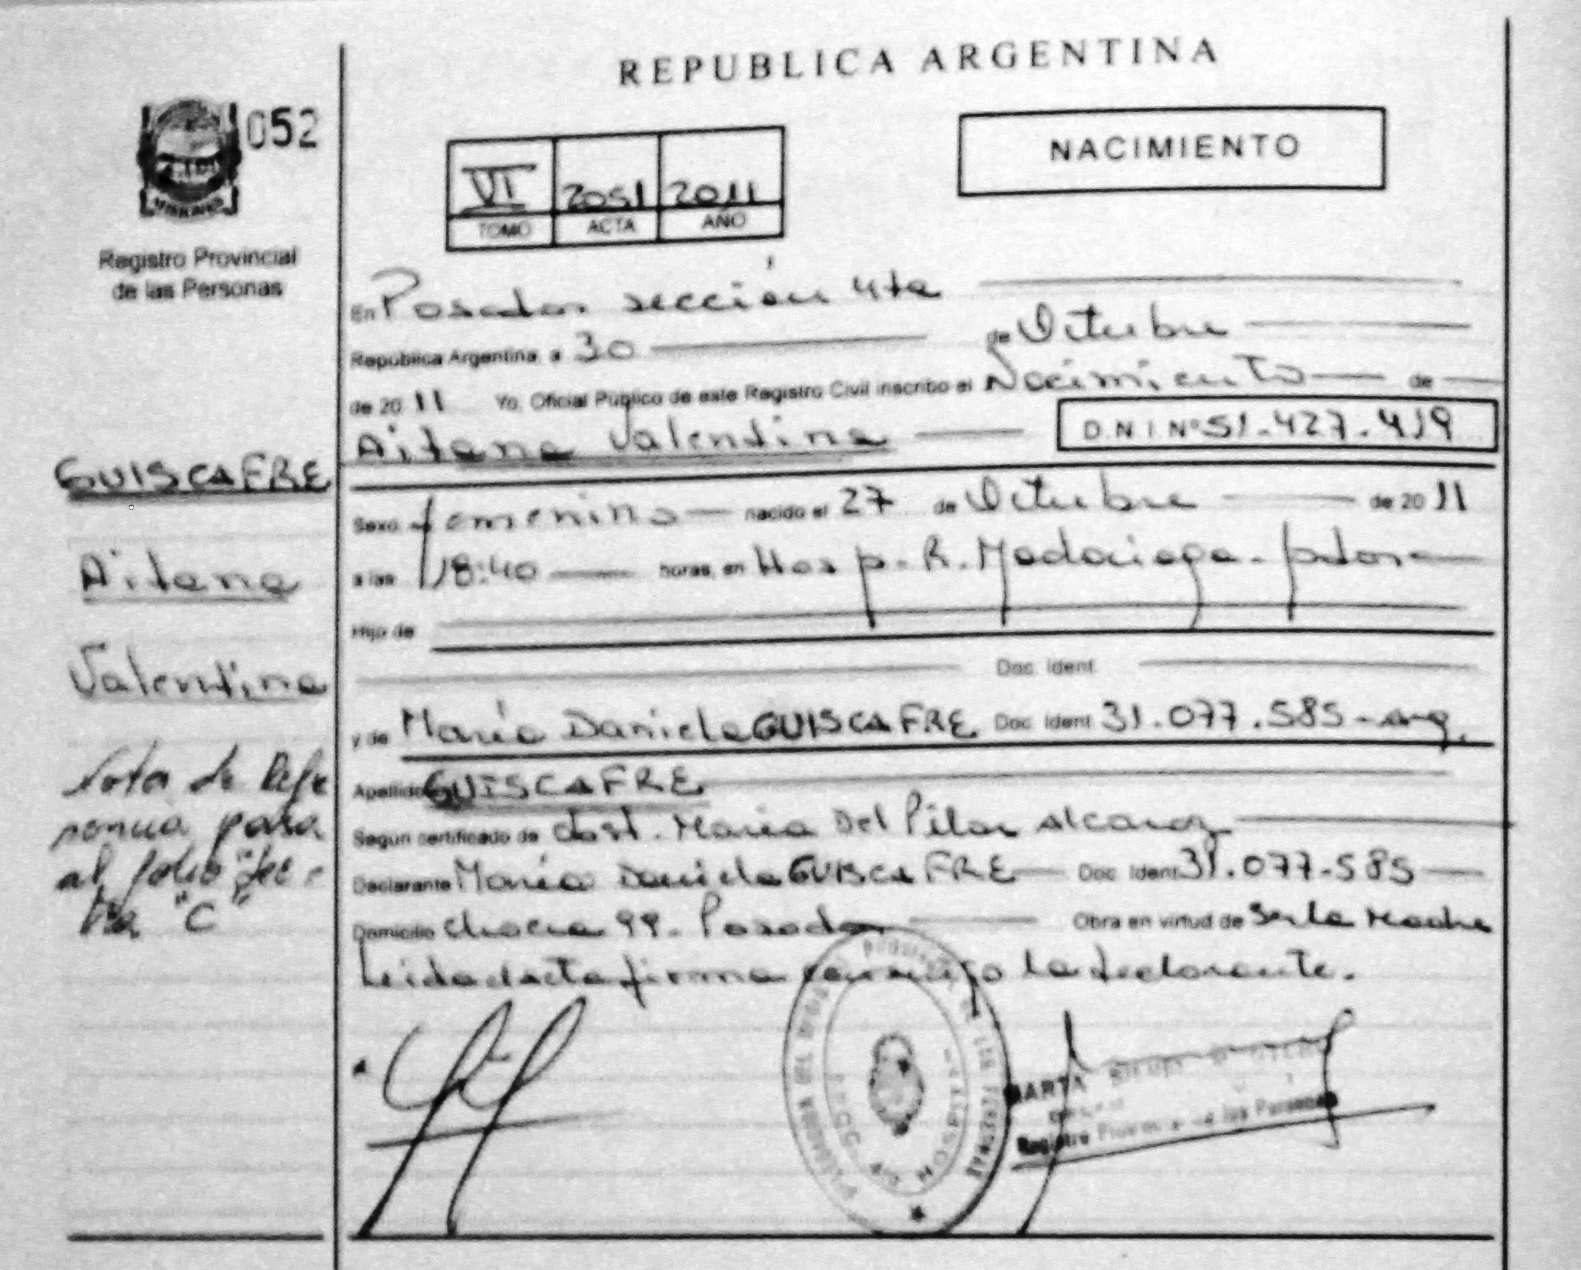 REPUBLICA ARGENTINA
052
NACIMIENTO
VI 2051 2011
TOMO ACTA AÑO
MISIONES
Registro Provincial
de las Personas
En Posadas sección 4ta
República Argentina, a 30 de Octubre
de 2011 Yo, Oficial Público de este Registro Civil inscribo el Nacimiento de
Aitana Valentina D.N.I Nº 51.427.419
GUISCAFRE
Aitana
Valentina
Sexo femenino nacido el 27 de Octubre de 2011
a las 18:40 horas, en Hosp. R. Madariaga - 
Hijo de
Doc. Ident.
y de María Daniela GUISCAFRE Doc. Ident. 31.077.585 - arg.
Apellido GUISCAFRE
Según certificado de Obst. María Del Pilar Alcaraz
Declarante María Daniela GUISCAFRE Doc. Ident. 31.077.585
Domicilio chacra 99 - Posadas Obra en virtud de Ser la Madre
Leida el acta firma conmigo la declarante.
Nota de Refe
rencia para
al folio "letra
"C"
MARTA
Registro Provincial de las Personas